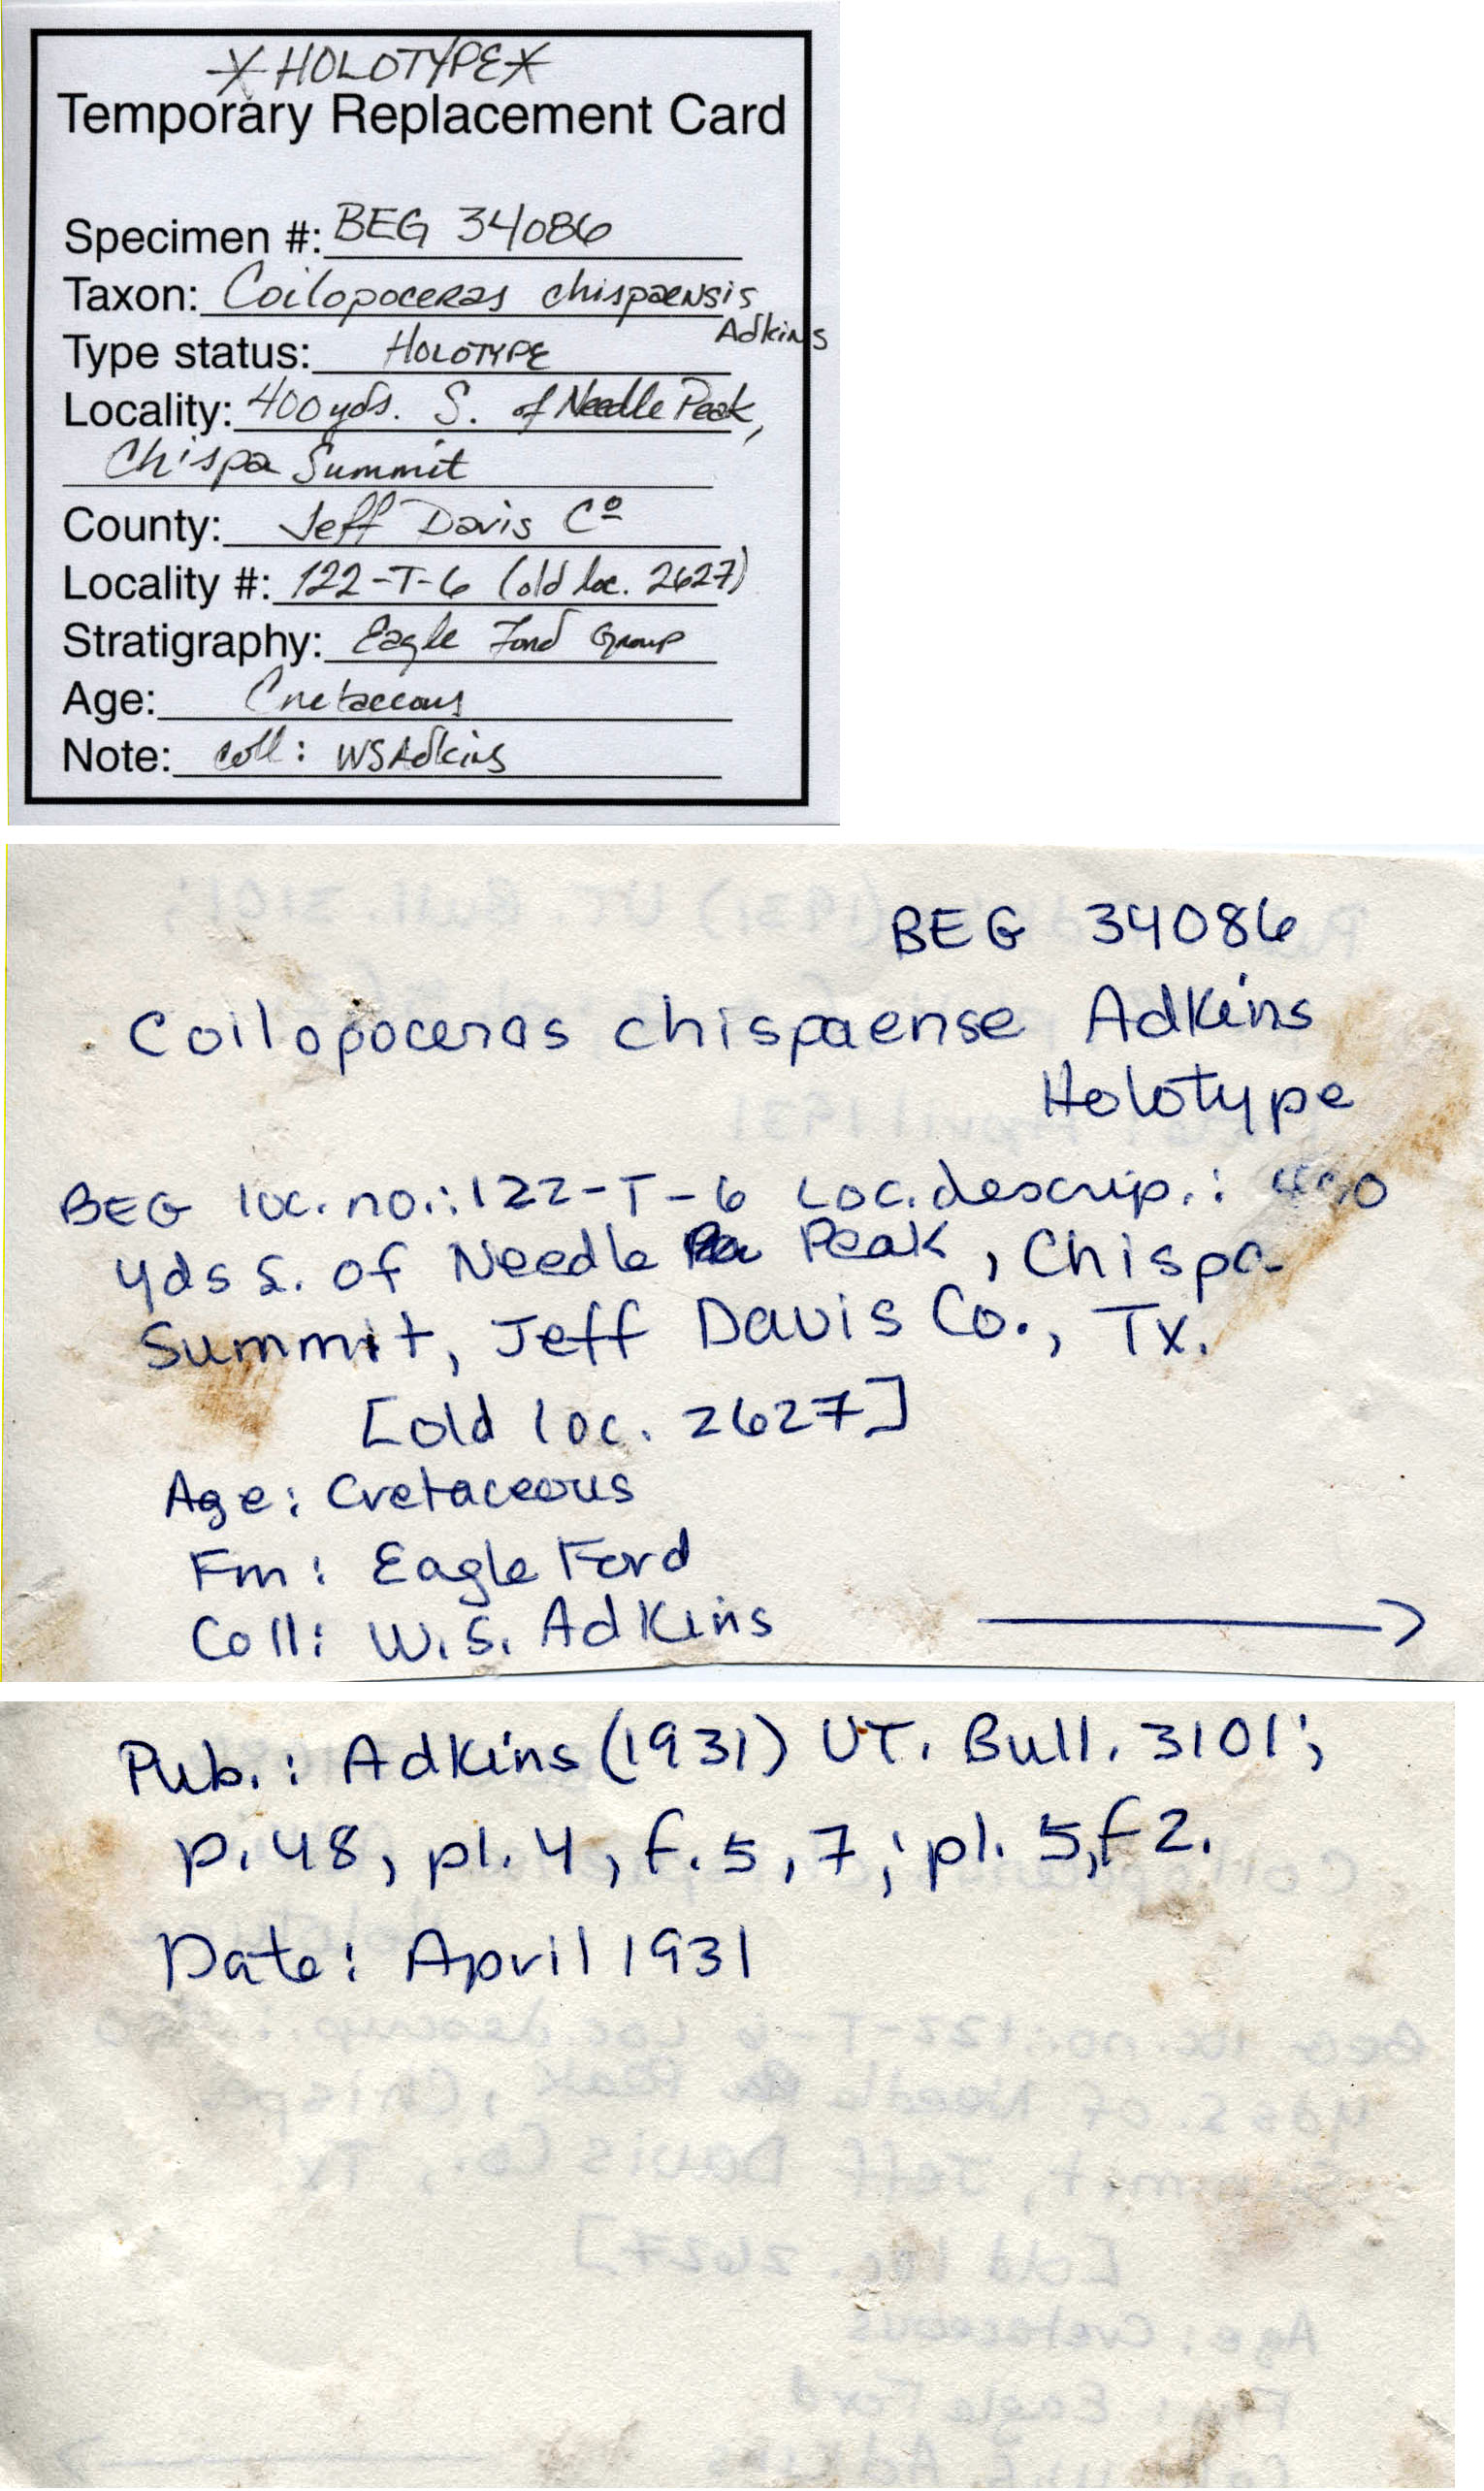 *HOLOTYPE*
Temporary Replacement Card
Specimen #: BEG 34086
Taxon: Coilopoceras chispaensis
Adkins
Type status: HOLOTYPE
Locality: 400 yds. S. of Needle Peak,
Chispa Summit
County: Jeff Davis Cº
Locality #: 122-T-6 (old loc. 2627)
Stratigraphy: Eagle Ford Group
Age: Cretaceous
Note: coll: WSAdkins
BEG 34086
Coilopoceras chispaense Adkins
Holotype
BEG loc. no.: 122-T-6 Loc. descrip.: 400
yds S. of Needle Peak, Chispa
Summit, Jeff Davis Co., Tx.
[old loc. 2627]
Age: Cretaceous
Fm: Eagle Ford
Coll: W.S. Adkins
Pub.: Adkins (1931) UT. Bull. 3101;
p. 48, pl. 4, f. 5, 7; pl. 5, f 2.
Date: April 1931